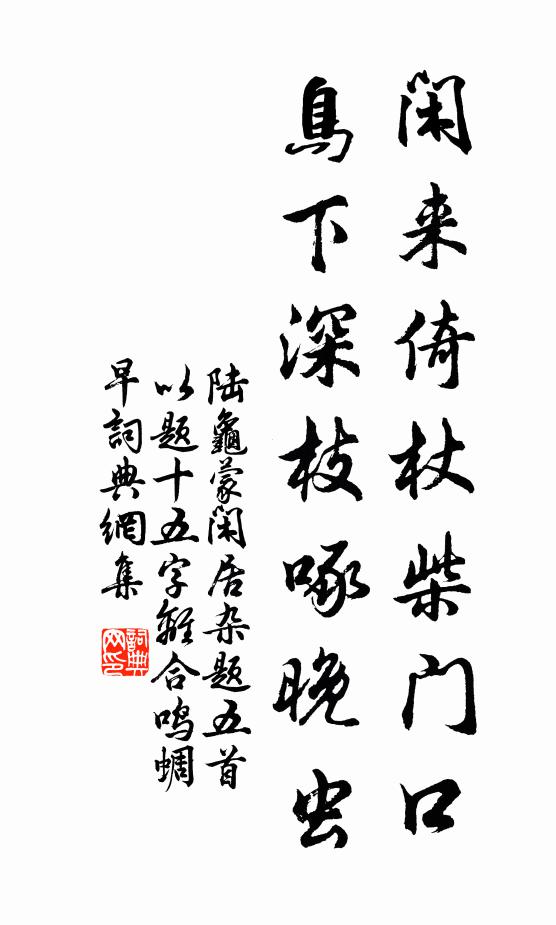 闲来倚杖柴门口
鳥下深枝啄晚虫
陆龜蒙闲居杂题五首
以题十五字離合鸣蜩
早詞典網集
詞典网印